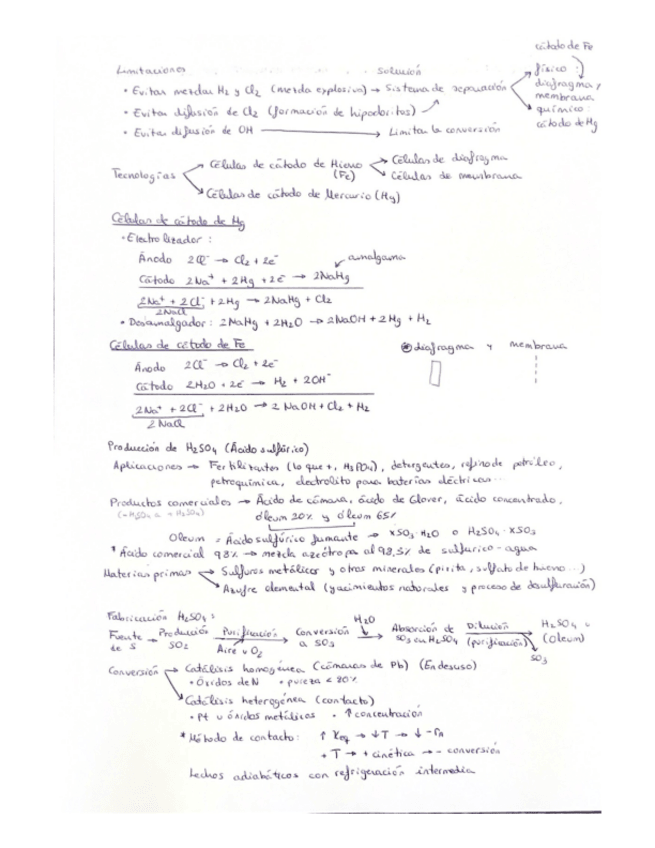 cátodo de Fe
Limitaciones Solución
físico:
• Evitar mezclar H₂ y Cl₂ (mezcla explosiva) → Sistema de separación
diafragma y membrana
químico: cátodo de Hg
• Evitar difusión de Cl₂ (formación de hipocloritos)
• Evitar difusión de OH → Limitar la conversión
Tecnologías → Células de cátodo de Hierro (Fe) → Células de diafragma
→ Células de membrana
→ Células de cátodo de Mercurio (Hg)
Células de cátodo de Hg
• Electrolizador:
Ánodo 2Cl⁻ → Cl₂ + 2e⁻
amalgama
Cátodo 2Na⁺ + 2Hg + 2e⁻ → 2NaHg
2Na⁺ + 2Cl⁻ + 2Hg → 2NaHg + Cl₂
2NaCl
• Desamalgador: 2NaHg + 2H₂O → 2NaOH + 2Hg + H₂
Células de cátodo de Fe
diafragma y membrana
Ánodo 2Cl⁻ → Cl₂ + 2e⁻
Cátodo 2H₂O + 2e⁻ → H₂ + 2OH⁻
2Na⁺ + 2Cl⁻ + 2H₂O → 2NaOH + Cl₂ + H₂
2NaCl
Producción de H₂SO₄ (Ácido sulfúrico)
Aplicaciones → Fertilizantes (lo que +, H₃PO₄), detergentes, refino de petróleo,
petroquímica, electrolito para baterías eléctricas...
Productos comerciales → Ácido de cámara, ácido de Glover, ácido concentrado,
(-H₂SO₄ a +H₂SO₄)
óleum 20% y óleum 65%
Oleum = Ácido sulfúrico fumante → XSO₃·H₂O o H₂SO₄·XSO₃
* Ácido comercial 98% → mezcla azeótropa al 98,3% de sulfúrico-agua
Materias primas → Sulfuros metálicos y otros minerales (pirita, sulfato de hierro...)
→ Azufre elemental (yacimientos naturales y proceso de desulfuración)
Fabricación H₂SO₄:
Fuente de S → Producción SO₂ → Purificación Aire u O₂ → Conversión a SO₃ → H₂O → Absorción de SO₃ en H₂SO₄ → Dilución (purificación) → SO₃ → H₂SO₄ u (Oleum)
Conversión → Catálisis homogénea (cámaras de Pb) (En desuso)
• Óxidos de N • pureza < 80%
→ Catálisis heterogénea (contacto)
• Pt u óxidos metálicos • ↑ concentración
* Método de contacto: ↑ Keq → ↓T → ↓ -rₐ
+T → + cinética → - conversión
Lechos adiabáticos con refrigeración intermedia